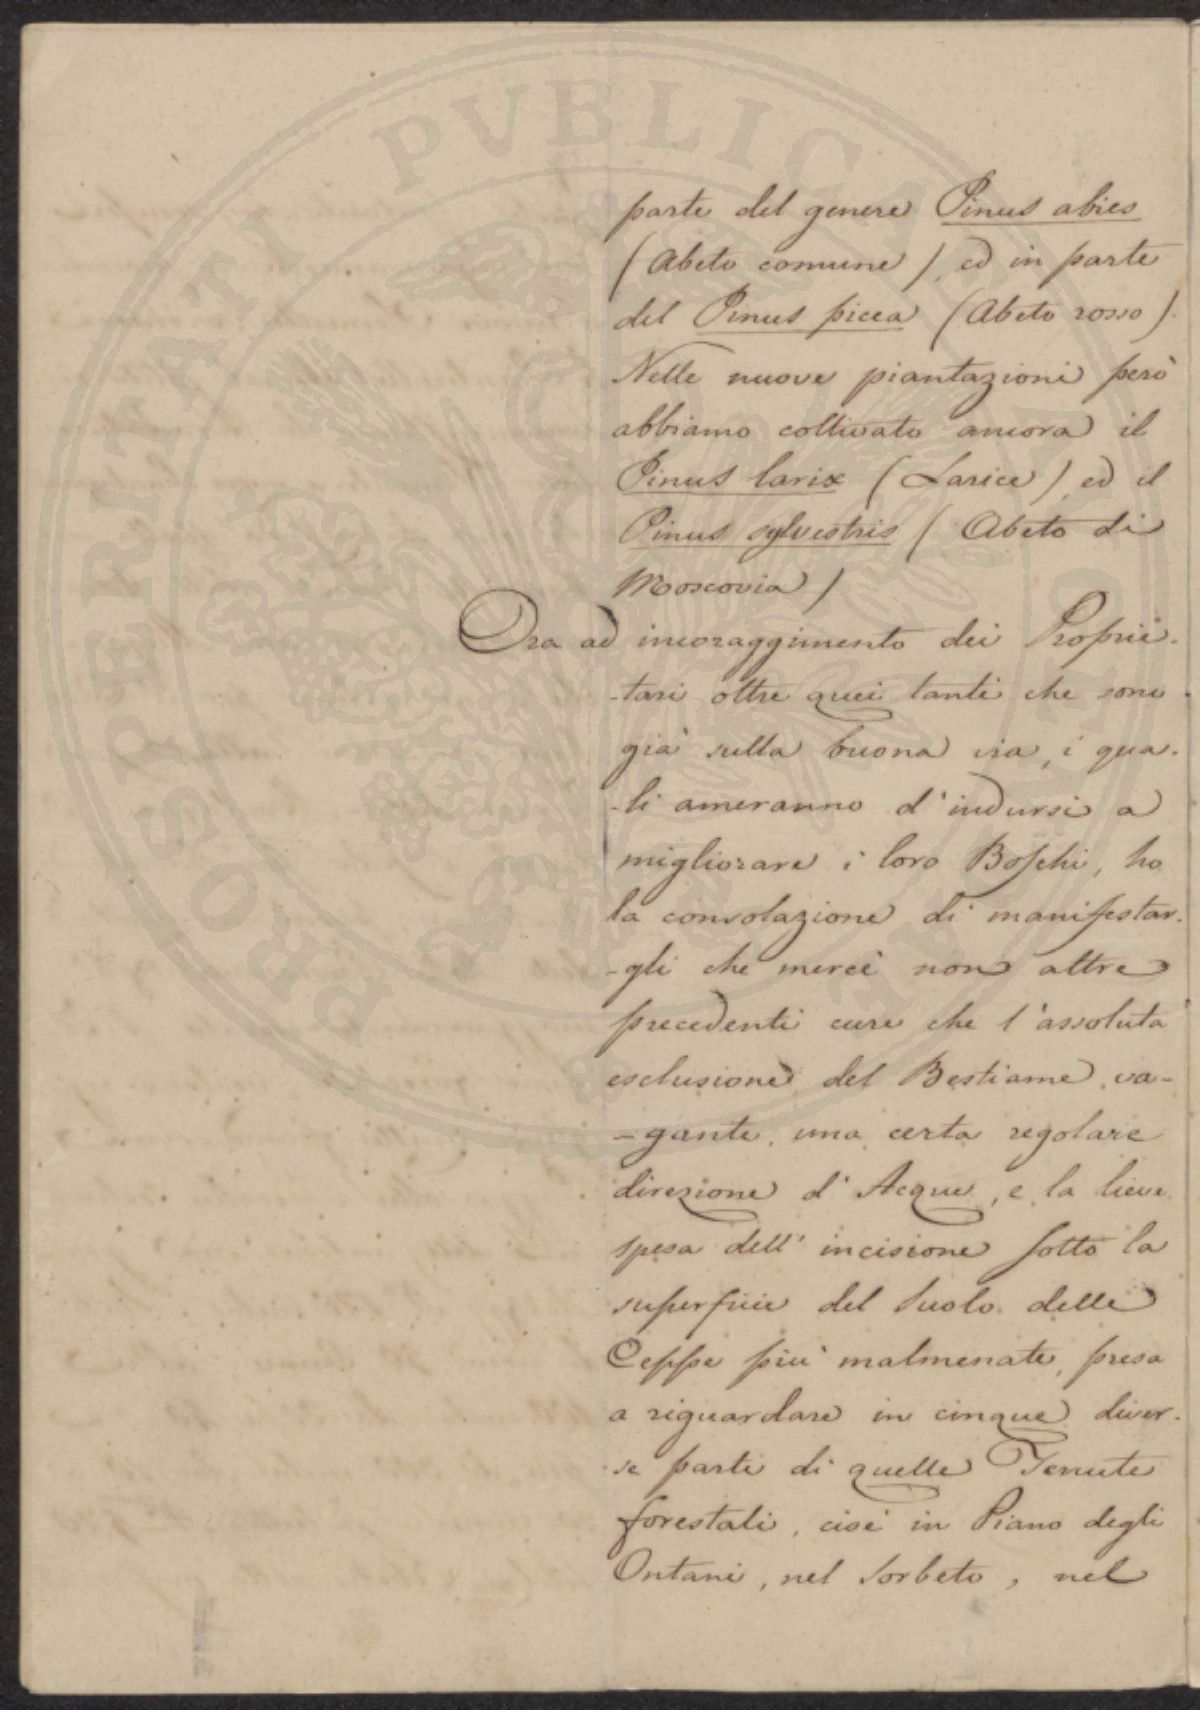 PROSPERITATI PUBLICAE
parte del genere Pinus abies
(Abeto comune), ed in parte
del Pinus picea (Abeto rosso).
Nelle nuove piantazioni però
abbiamo coltivato ancora il
Pinus larix (Larice), ed il
Pinus sylvestris (Abeto di
Moscovia)
Ora ad incoraggimento dei Proprie-
-tari oltre quei tanti che sono
già sulla buona via, i qua-
-li ameranno d'indursi a
migliorare i loro Boschi, ho
la consolazione di manifestar-
-gli che mercè non altre
precedenti cure che l'assoluta
esclusione del Bestiame va-
-gante, una certa regolare
direzione d'Acque, e la lieve
spesa dell'incisione sotto la
superficie del Suolo delle
Ceppe più malmenate, presa
a riguardare in cinque diver-
-se parti di quelle Tenute
forestali, cioè in Piano degli
Ontani, nel Sorbeto, nel